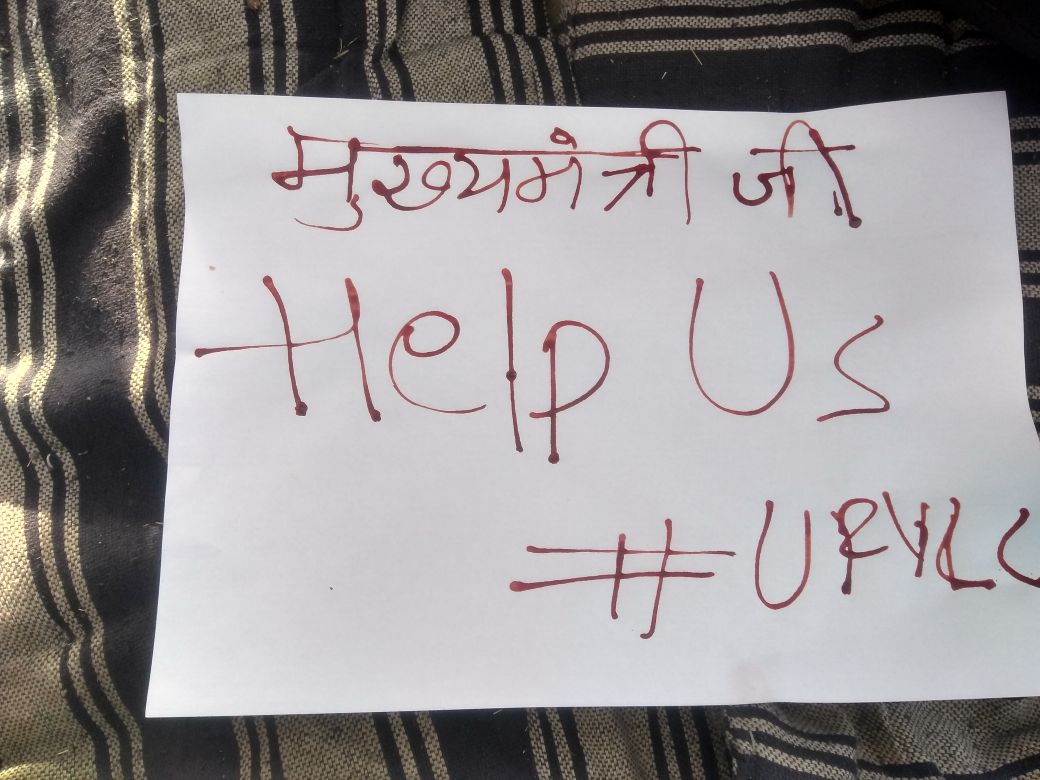 मुख्यमंत्री जी
Help Us
#UPVLC